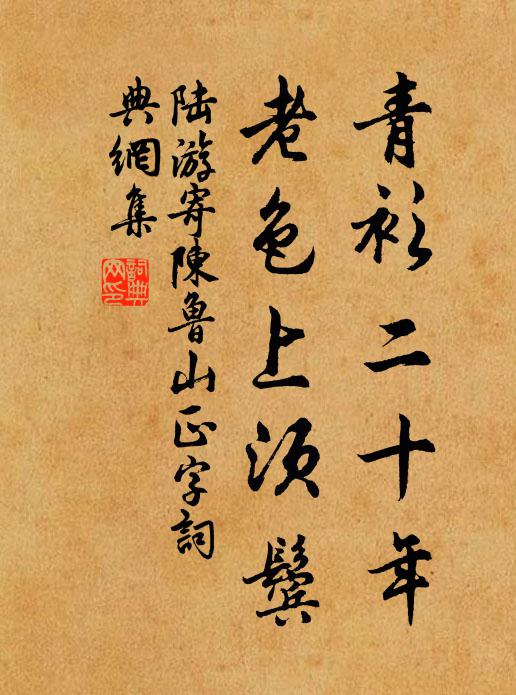 青衫二十年
老色上须鬓
陆游寄陳魯山正字詞
典網集
詞典網印